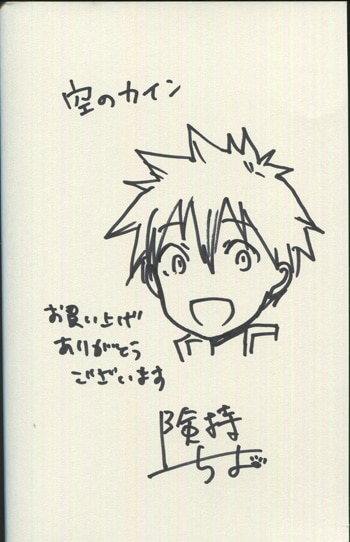 空のカイン
お買い上げ
ありがとう
ございます
険持
ちよ